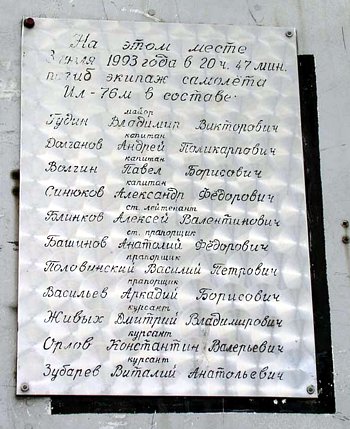 На этом месте
3 июня 1993 года в 20 ч. 47 мин.
погиб экипаж самолёта
Ил-76м в составе:
майор
Гудин Владимир Викторович
капитан
Долганов Андрей Поликарпович
капитан
Волгин Павел Борисович
капитан
Синюков Александр Фёдорович
ст. лейтенант
Блинков Алексей Валентинович
ст. прапорщик
Башинов Анатолий Фёдорович
прапорщик
Половинский Василий Петрович
прапорщик
Васильев Аркадий Борисович
курсант
Живых Дмитрий Владимирович
курсант
Орлов Константин Валерьевич
курсант
Зубарев Виталий Анатольевич